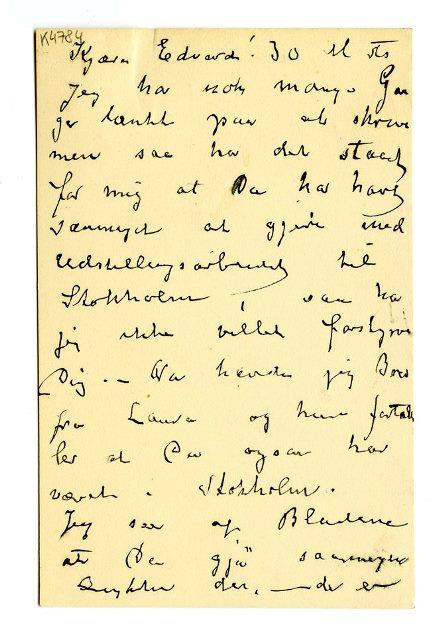 K4784
Kjære Edvard! 30
Jeg har nok mange Gan
ger tænkt paa at skrive
men saa har det staaet
for mig at Du har havt
saameget at gjøre med
Udstillingsarbeidet til
Stokholm, saa har
jeg ikke villet forstyrre
Dig. – Nu hævder jeg Brev
fra Laura og hun fortæl
ler at Du ogsaa har
været i Stokholm.
Jeg saa af Bladene
at Du gjør saameget
Lykke der, – de er